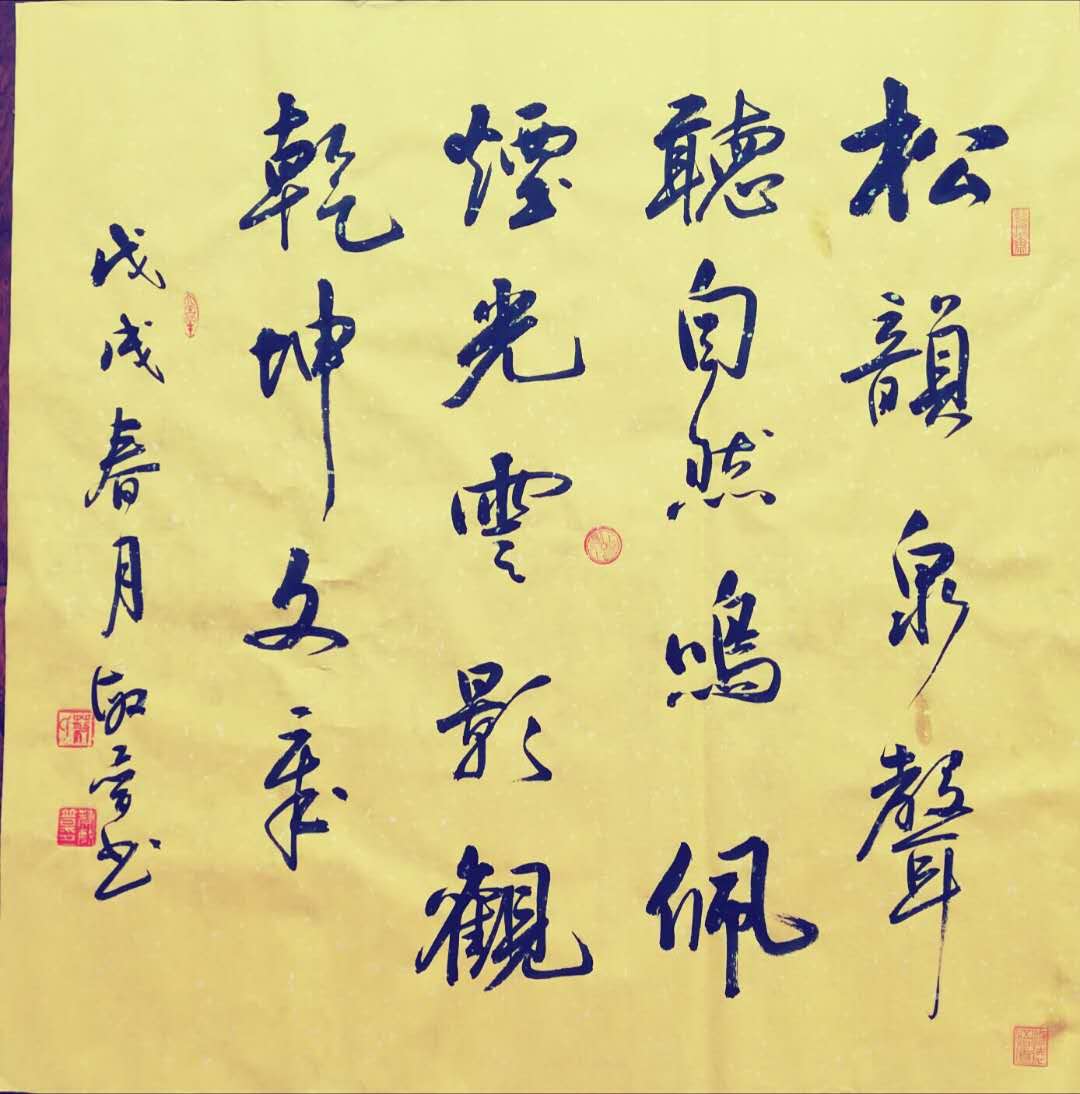 松韻泉聲
聽自然鳴佩
煙光雲影觀
乾坤文章
戊戌春月敬書